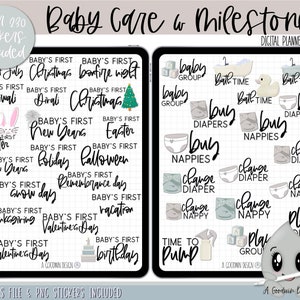 Baby Care & Mileston
DIGITAL PLANNE
290
BABY'S FIRST
Christmas
BABY'S FIRST
bonfire night
BABY'S FIRST
Diwali
BABY'S FIRST
Christmas
BABY'S FIRST
New Years
BABY'S FIRST
Easter
BABY'S FIRST
Holiday
BABY'S FIRST
halloween
BABY'S FIRST
snow day
BABY'S FIRST
Remembrance day
BABY'S FIRST
Valentine's Day
BABY'S FIRST
vacation
BABY'S FIRST
Valentine's Day
BABY'S FIRST
birthday
A GOODWIN DESIGN
baby
GROUP
Bath TIME
Bath TIME
baby
GROUP
buy
DIAPERS
buy
DIAPERS
buy
NAPPIES
buy
NAPPIES
change
DIAPER
change
DIAPER
change
NAPPY
change
NAPPY
TIME TO
Pump
PLAY
GROUP
A GOODWIN DESIGN
S FILE & PNG STICKERS INCLUDED